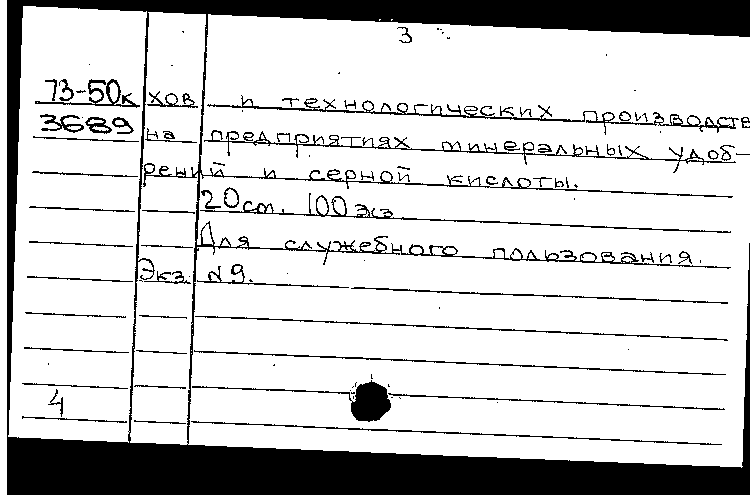 3
73-50к хов и технологических производств
3689 на предприятиях минеральных удоб-
рений и серной кислоты.
20 см. 100 экз.
Для служебного пользования.
Экз. №9.
4